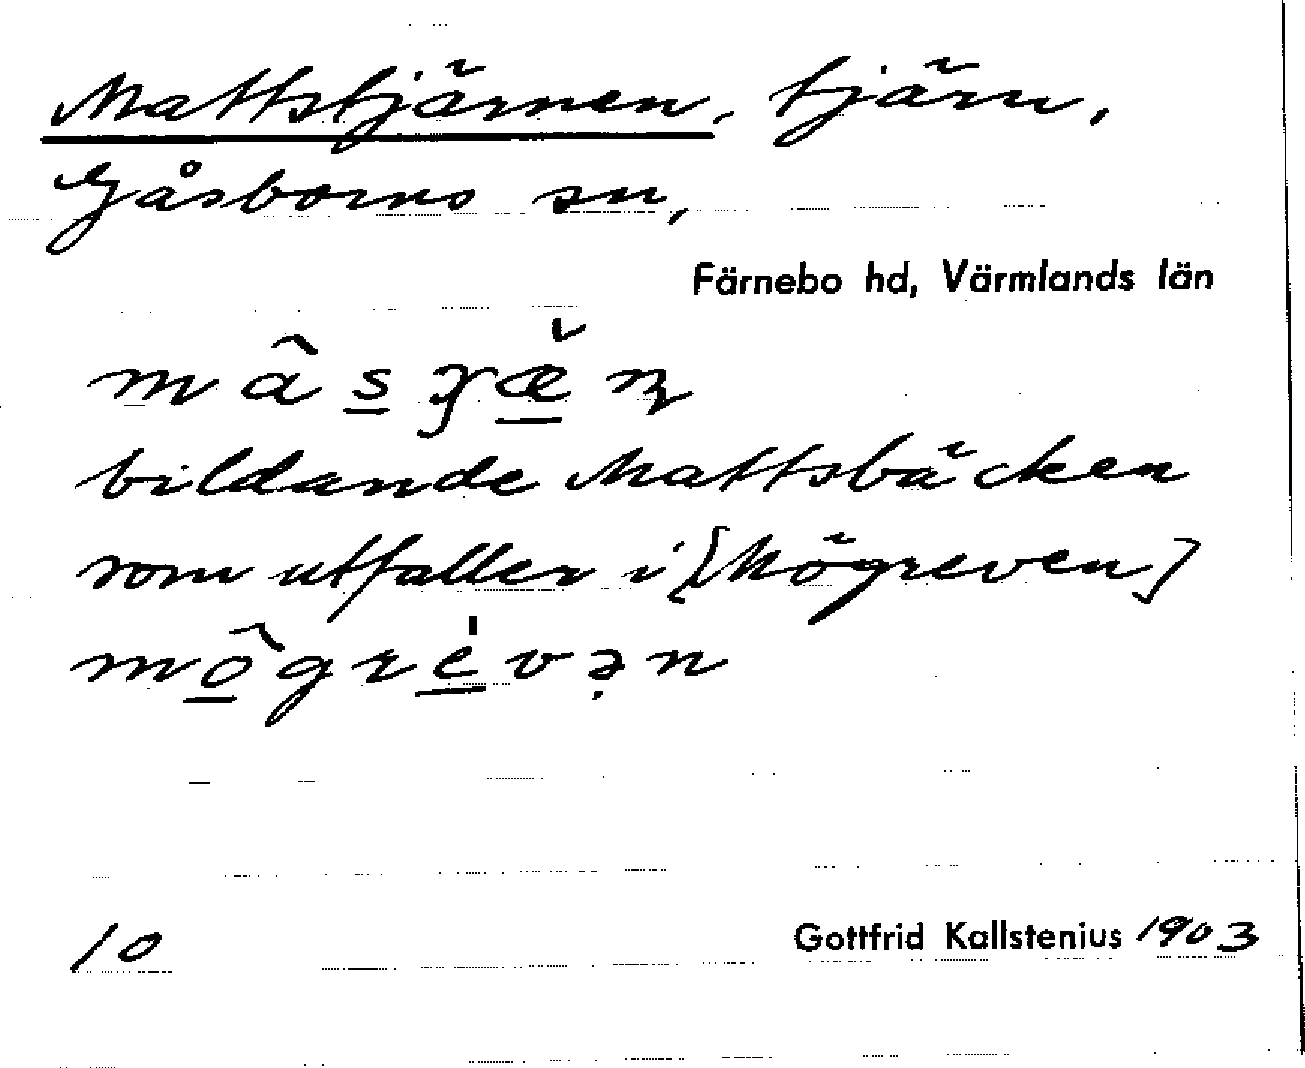 Mattstjärnen, tjärn,
Gåsborns sn,
Färnebo hd, Värmlands län
bildande Mattsbäcken
som utfaller i [Mögreven]
môgrévən
10
Gottfrid Kallstenius 1903